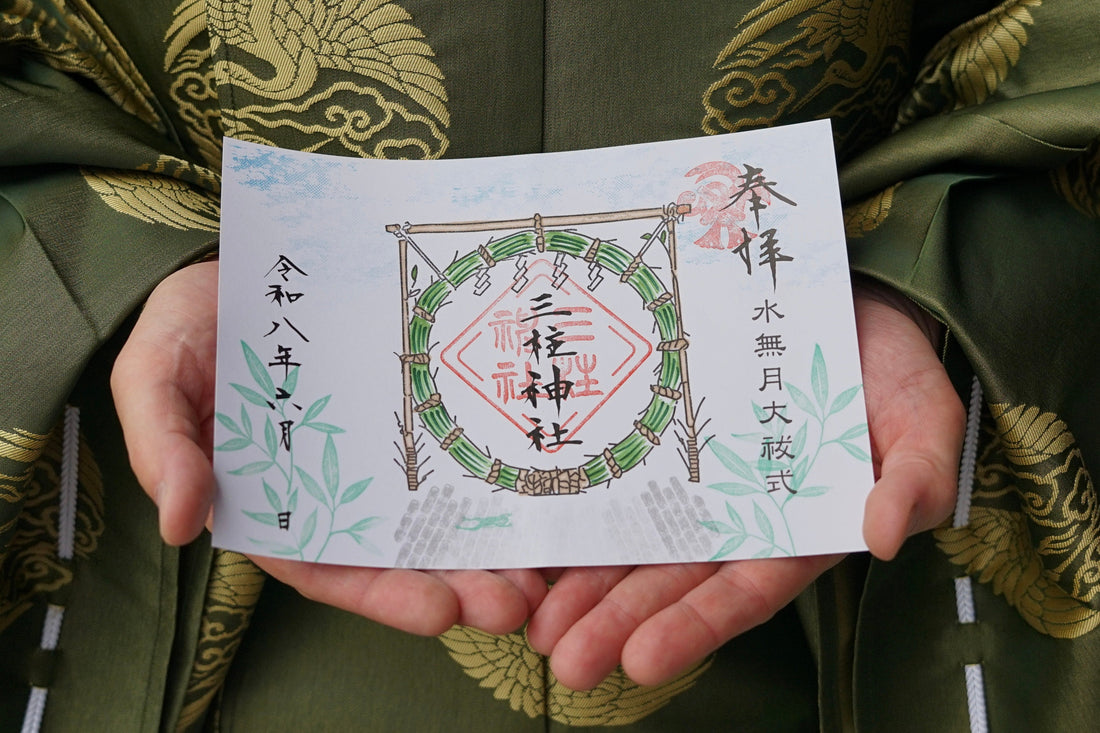 奉拝
水無月大祓式
三柱神社
三柱
神社
令和八年六月 日